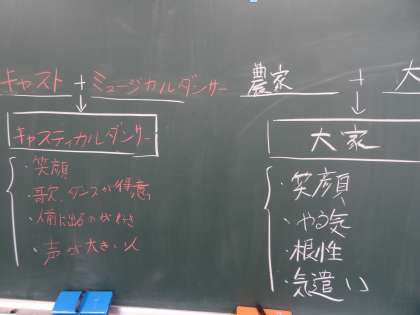 キャスト + ミュージカルダンサー
キャスティカルダンサー
・笑顔
・歌、ダンスが得意
・人前に出るのが好き
・声が大きい人
農家 + 大
大家
・笑顔
・やる気
・根性
・気遣い